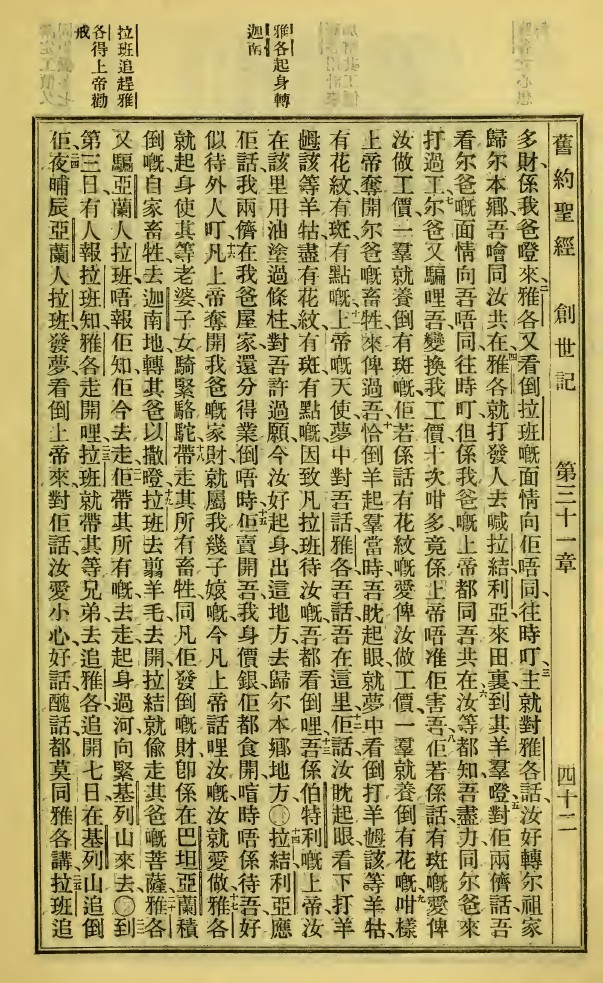 舊約聖經 創世記 第三十一章 四十二
雅各起身轉
迦南
拉班追趕雅
各得上帝勸
戒
多財係我爸噔來雅各又看倒拉班嘅面情向佢唔同往時叮主就對雅各話汝好轉尔祖家
歸尔本鄉吾噲同汝共在雅各就打發人去喊拉結利亞來田裏到其羊羣噔對佢兩儕話吾
看尔爸嘅面情向吾唔同往時叮但係我爸嘅上帝都同吾共在汝等都知吾盡力同尔爸來
打過工尔爸又騙哩吾變換我工價十次咁多竟係上帝唔准佢害吾佢若係話有斑嘅愛俾
汝做工價一羣就養倒有斑嘅佢若係話有花紋嘅愛俾汝做工價一羣就養倒有花嘅咁樣
上帝奪開尔爸嘅畜牲來俾過吾恰倒羊起羣當時吾眈起眼就夢中看倒打羊𫲗該等羊牯
有花紋有斑有點嘅上帝嘅天使夢中對吾話雅各吾話吾在這里佢話汝眈起眼看下打羊
𫲗該等羊牯盡有花紋有斑有點嘅因致凡拉班待汝嘅吾都看倒哩吾係伯特利嘅上帝汝
在該里用油塗過條柱對吾許過願今汝好起身出這地方去歸尔本鄉地方〇拉結利亞應
佢話我兩儕在我爸屋家還分得業倒唔時佢賣開吾我身價銀佢都食開喧時唔係待吾好
似待外人叮凡上帝奪開我爸嘅家財就屬我幾子娘嘅今凡上帝話哩汝嘅汝就愛做雅各
就起身使其等老婆子女騎緊駱駝帶走其所有畜牲同凡佢發倒嘅財卽係在巴坦亞蘭積
倒嘅自家畜牲去迦南地轉其爸以撒噔拉班去翦羊毛去開拉結就偷走其爸嘅菩薩雅各
又騙亞蘭人拉班唔報佢知佢今去走佢帶其所有嘅去走起身過河向緊基列山來去〇到
第三日有人報拉班知雅各走開哩拉班就帶其等兄弟去追雅各追開七日在基列山追倒
佢夜晡辰亞蘭人拉班發夢看倒上帝來對佢話汝愛小心好話醜話都莫同雅各講拉班追